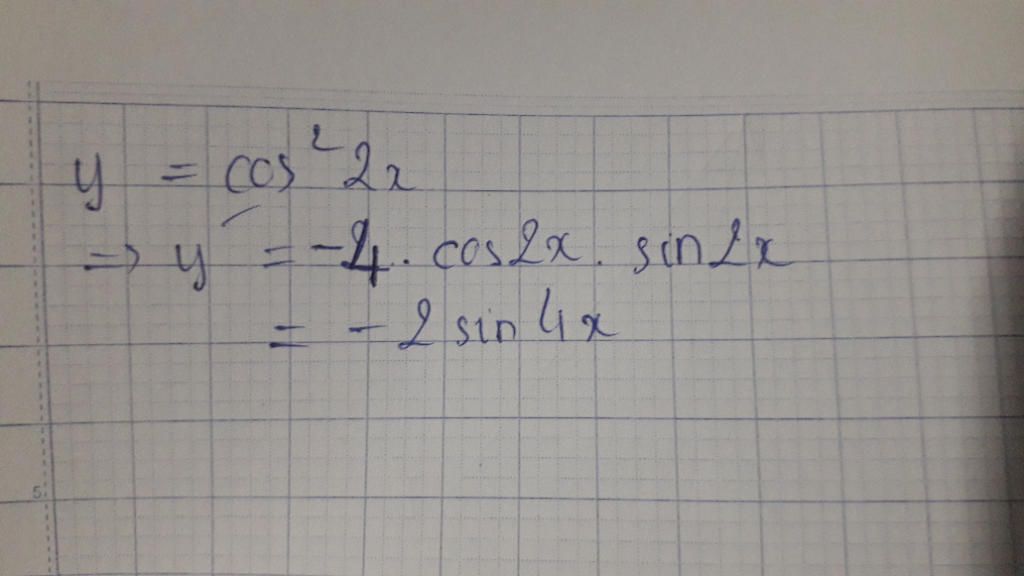 y = cos² 2x
=> y' = -4. cos2x. sin2x
= -2 sin 4x
5